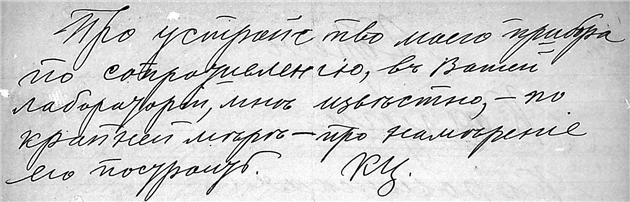 Про устройство моего прибора
по сопротивленію, въ Вашей
лабораторіи, мнѣ извѣстно, – по
крайней мѣрѣ – про намѣреніе
его построить. КЦ.